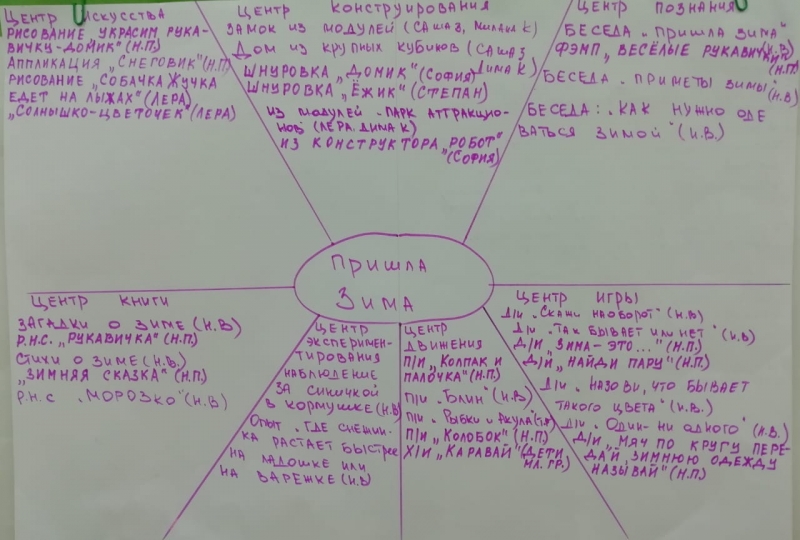 Центр искусства
Рисование украсим рука-
вичку-домик" (Н.П.)
Аппликация „Снеговик" (Н.П)
Рисование „Собачка Жучка
едет на лыжах" (Лера)
„Солнышко-цветочек" (Лера)
Центр конструирования
Замок из модулей (Саша З, Милана К)
Дом из крупных кубиков (Саша З
Дима К)
Шнуровка „Домик" (София)
Шнуровка „Ёжик" (Степан)
из модулей - парк аттракцио-
нов (Лера, Дима К)
из конструктора „Робот"
(София)
Центр познания
Беседа „Пришла зима"
(И.В)
ФЭМП „Весёлые рукавички"
(Н.П)
Беседа „Приметы зимы"
(И.В)
Беседа: „Как нужно оде
ваться зимой" (И.В.)
Пришла
Зима
Центр книги
Загадки о зиме (И.В)
Р.н.с. „Рукавичка" (Н.П.)
Стихи о зиме (И.В.)
„Зимняя сказка" (Н.П.)
Р.н.с „Морозко" (И.В)
Центр
эксперимен-
тирования
наблюдение
за синичкой
в кормушке (И.В)
Опыт „Где снежин-
ка растает быстрее
на ладошке или
на варежке (И.В)
Центр
движения
П/и „Колпак и
палочка" (Н.П.)
П/и „Блин" (И.В)
П/и „Рыбки и акула"
П/и „Колобок" (Н.П)
Х/и „Каравай" (дети
мл. гр.)
Центр игры
Д/и „Скажи наоборот" (И.В)
Д/и „Так бывает или нет" (И.В)
Д/и „Зима-это..." (Н.П.)
Д/и „Найди пару" (Н.П.)
Д/и „Назови, что бывает
такого цвета" (И.В.)
Д/и „Один - ни одного" (И.В.)
Д/и „Мяч по кругу пере-
дай, зимнюю одежду
называй" (Н.П)